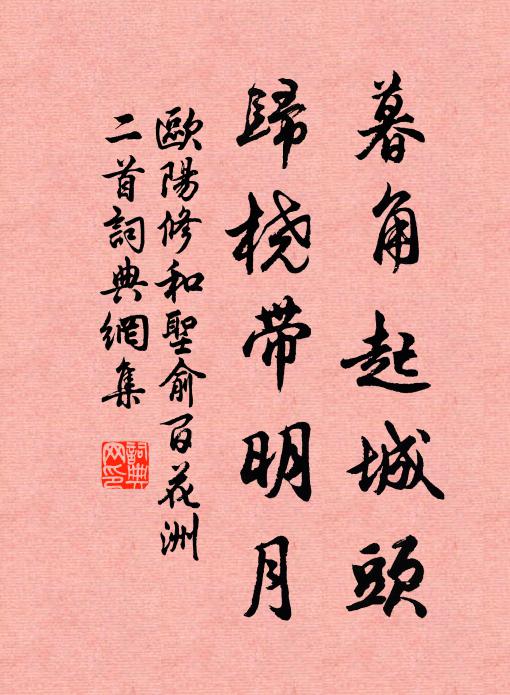 暮角起城頭
歸桡帶明月
歐陽修和聖俞百花洲
二首詞典網集
詞典网印